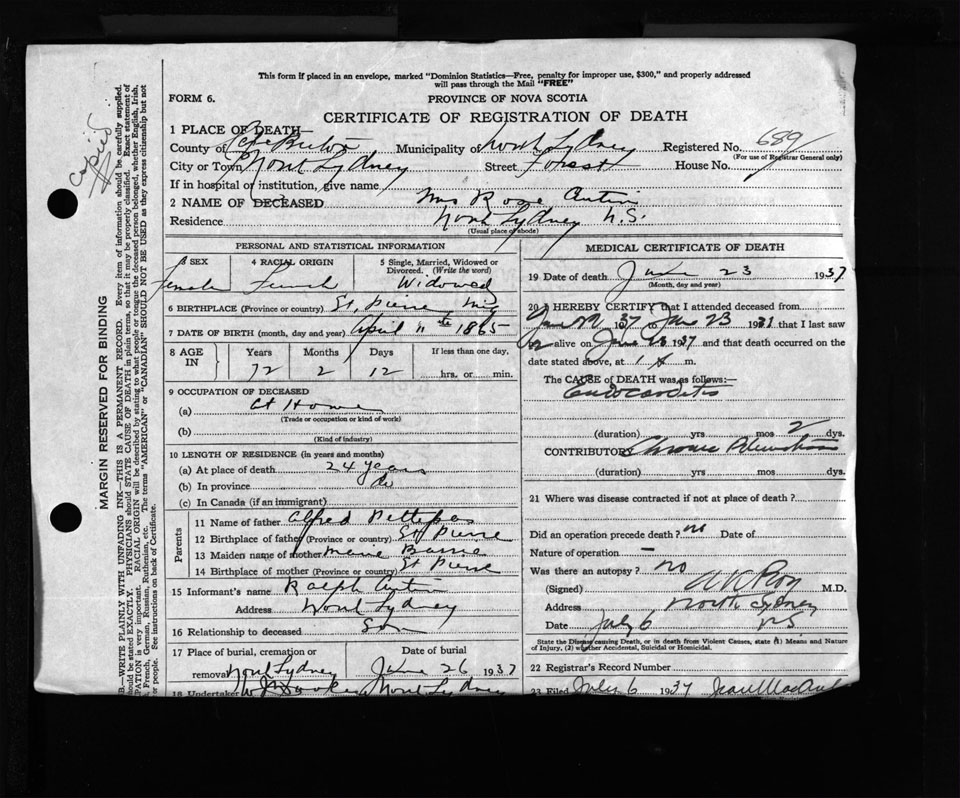 This form if placed in an envelope, marked "Dominion Statistics—Free, penalty for improper use, $300," and properly addressed
will pass through the Mail "FREE"
FORM 6.
PROVINCE OF NOVA SCOTIA
CERTIFICATE OF REGISTRATION OF DEATH
Copied
1 PLACE OF DEATH—
County of Cape Breton Municipality of North Sydney Registered No. 689
(For use of Registrar General only)
City or Town North Sydney Street Forest House No.
If in hospital or institution, give name
2 NAME OF DECEASED Mrs Rose
Residence North Sydney N.S.
(Usual place of abode)
PERSONAL AND STATISTICAL INFORMATION
3 SEX Female
4 RACIAL ORIGIN French
5 Single, Married, Widowed or Divorced. (Write the word) Widowed
6 BIRTHPLACE (Province or country) St. Pierre Miq
7 DATE OF BIRTH (month, day and year) April 11th 1865
8 AGE IN Years Months Days If less than one day,
72 2 12 hrs. or min.
9 OCCUPATION OF DECEASED
(a) At Home
(Trade or occupation or kind of work)
(b)
(Kind of industry)
10 LENGTH OF RESIDENCE (in years and months)
(a) At place of death 24 years
(b) In province do
(c) In Canada (if an immigrant)
Parents
11 Name of father Alfred
12 Birthplace of father (Province or country) St Pierre
13 Maiden name of mother Marie
14 Birthplace of mother (Province or country) St Pierre
15 Informant's name Ralph
Address North Sydney
16 Relationship to deceased Son
17 Place of burial, cremation or removal North Sydney
Date of burial June 26 1937
18 Undertaker North Sydney
MEDICAL CERTIFICATE OF DEATH
19 Date of death June 23 1937
(Month, day and year)
20 I HEREBY CERTIFY that I attended deceased from
37 to June 23 1931 that I last saw
alive on June 1937 and that death occurred on the
date stated above, at m.
The CAUSE of DEATH was as follows:—
Endocarditis
(duration) yrs mos 2 dys.
CONTRIBUTORY Chronic
(duration) yrs. mos. dys.
21 Where was disease contracted if not at place of death?
Did an operation precede death? no Date of
Nature of operation —
Was there an autopsy? no
(Signed) Roy M.D.
Address North Sydney
Date July 6 NS
State the Disease causing Death, or in death from Violent Causes, state (1) Means and Nature
of Injury, (2) whether Accidental, Suicidal or Homicidal.
22 Registrar's Record Number
23 Filed July 6 1937
MARGIN RESERVED FOR BINDING
B.—WRITE PLAINLY WITH UNFADING INK—THIS IS A PERMANENT RECORD. Every item of information should be carefully supplied.
should be stated EXACTLY. PHYSICIANS should STATE CAUSE OF DEATH in plain terms, so that it may be properly classified. Exact statement of
PATION is very important. RACIAL ORIGIN will be described by stating to what people or tongue the deceased person belonged, whether English, Irish,
French, German, Russian, Ruthenian, etc. The terms "AMERICAN" or "CANADIAN" SHOULD NOT BE USED as they express citizenship but not
or people. See instructions on back of Certificate.